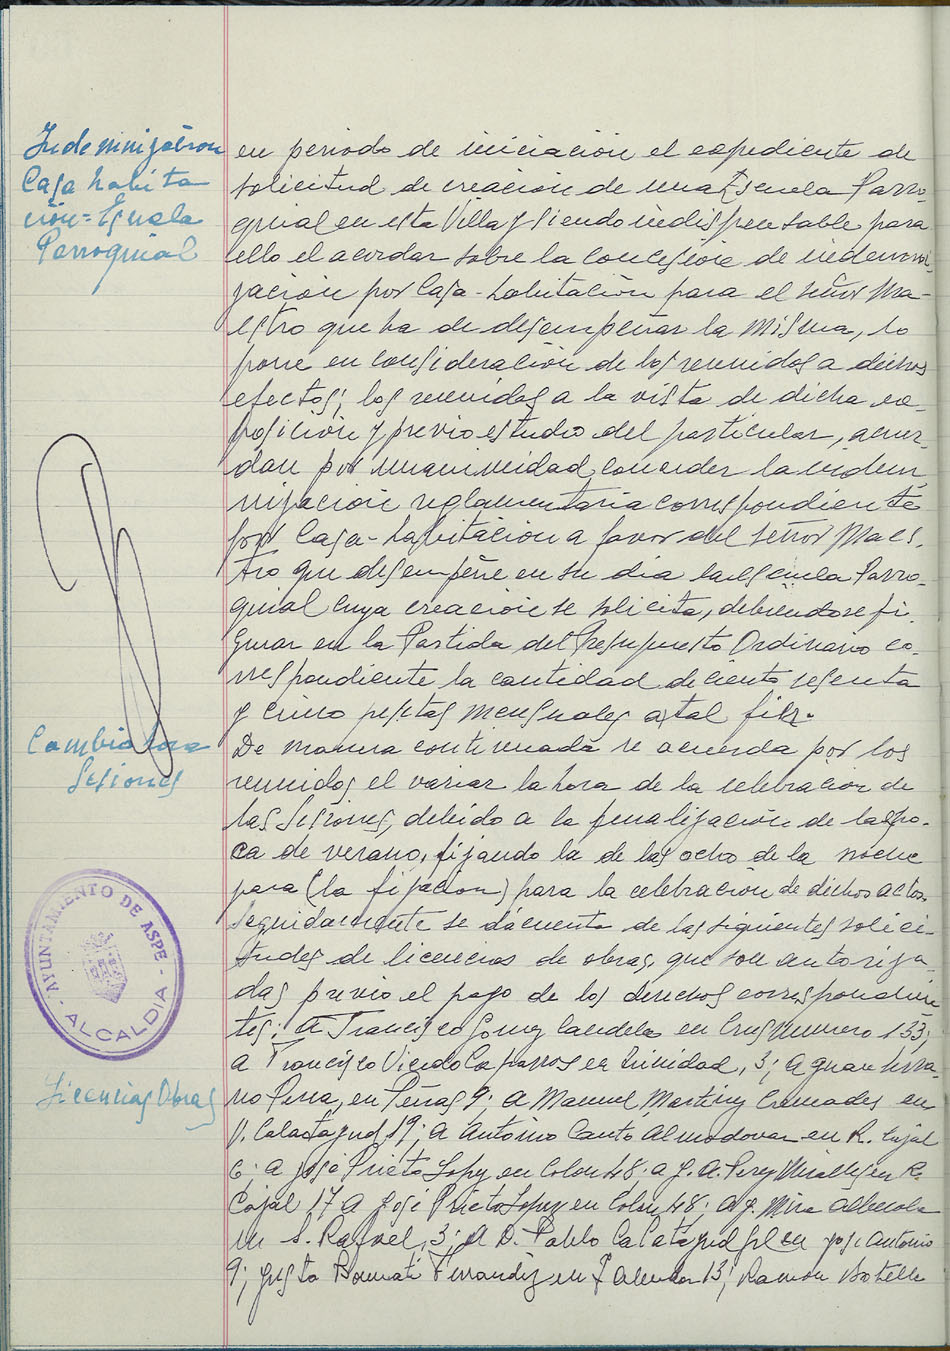 Indemnización
Casa habita
ción = Escuela
Parroquial
en periodo de iniciación el expediente de
solicitud de creación de una Escuela Parro-
quial en esta Villa y siendo indispensable para
ello el acordar sobre la concesión de indemni-
zación por Casa-habitación para el señor Ma-
estro que ha de desempeñar la misma, lo
pone en consideración de los reunidos a dichos
efectos; los reunidos a la vista de dicha ex-
posición y previo estudio del particular, acuer-
dan por unanimidad, conceder la indem-
nización reglamentaria correspondiente
por Casa-habitación a favor del señor Maes-
tro que desempeñe en su dia la escuela Parro-
quial cuya creación se solicita, debiéndose fi-
gurar en la Partida del Presupuesto Ordinario co-
rrespondiente la cantidad de ciento sesenta
y cinco pesetas mensuales a tal fin.
Cambio hora
Sesiones
De manera continuada se acuerda por los
reunidos, el variar la hora de la celebración de
las Sesiones, debido a la finalización de la épo-
ca de verano, fijando la de las ocho de la noche
para (la fijación) para la celebración de dichos actos.
AYUNTAMIENTO DE ASPE
ALCALDIA
Seguidamente se da cuenta de las siguientes solici-
tudes de licencias de obras, que son autoriza-
das previo el pago de los derechos correspondien-
tes: a Francisco Gomez Candela en Cruz numero 133;
Licencias Obras
a Francisco Vicedo Caparros en Trinidad, 3; a Juan Serra-
no Perea, en Peñas 9; a Manuel Martinez Cremades en
V. Calatayud 19; a Antonio Canto Almodovar en R. Cajal
6; a José Prieto Lopez en Colon 48; a J. A. Perez Miralles en R.
Cajal 17 a José Prieto Lopez en Colon 48; a J. Mira Alberola
en S. Rafael, 3; a D. Pablo Calatayud en José Antonio
9; Justo Bernandez en 13; Ramon Botella